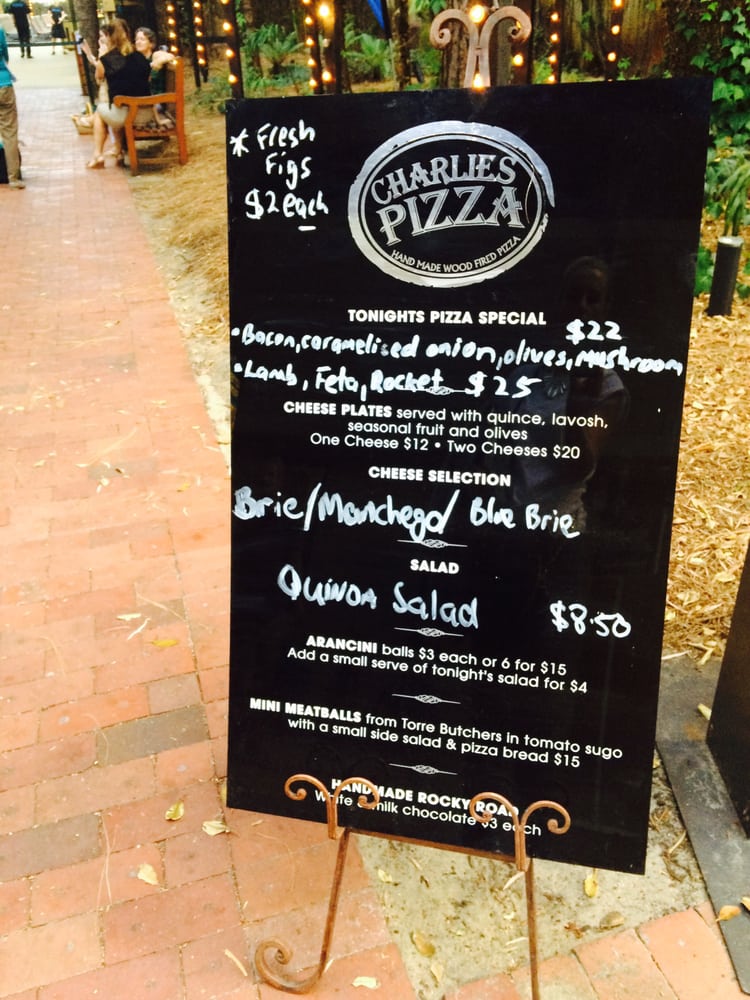 * Fresh
Figs
$2 each
CHARLIES
PIZZA
HAND MADE WOOD FIRED PIZZA
TONIGHTS PIZZA SPECIAL
$22
• Bacon, caramelised onion, olives, mushroom
• Lamb, Feta, Rocket $25
CHEESE PLATES served with quince, lavosh,
seasonal fruit and olives
One Cheese $12 • Two Cheeses $20
CHEESE SELECTION
Brie/Manchego/ Blue Brie
SALAD
Quinoa Salad $8.50
ARANCINI balls $3 each or 6 for $15
Add a small serve of tonight's salad for $4
MINI MEATBALLS from Torre Butchers in tomato sugo
with a small side salad & pizza bread $15
HANDMADE ROCKY ROAD
White & milk chocolate $3 each